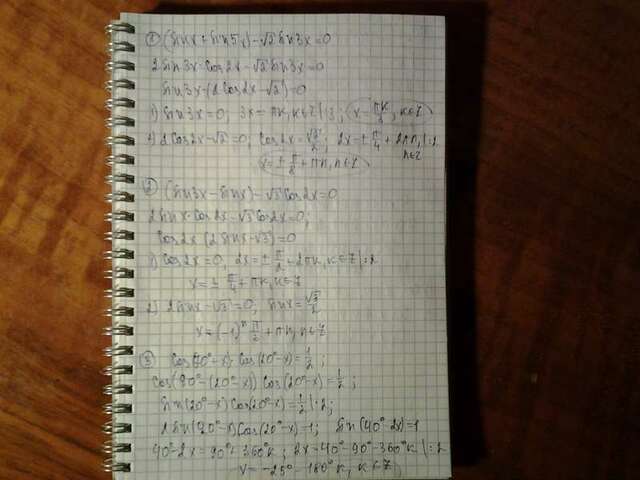 ① (sin x + sin 5x) − √2 sin 3x = 0
2 sin 3x · cos 2x − √2 sin 3x = 0
sin 3x (2 cos 2x − √2) = 0
1) sin 3x = 0; 3x = πk, k∈Z |:3; x = πk/3, k∈Z
2 cos 2x − √2 = 0; cos 2x = √2/2; 2x = ± π/4 + 2πn, |:2 n∈Z
x = ± π/8 + πn, n∈Z
② (sin 3x − sin x) − √3 cos 2x = 0
2 sin x · cos 2x − √3 cos 2x = 0;
cos 2x (2 sin x − √3) = 0
1) cos 2x = 0, 2x = ± π/2 + 2πk, k∈Z |:2
x = ± π/4 + πk, k∈Z
2) 2 sin x − √3 = 0; sin x = √3/2
x = (−1)ⁿ + πn, n∈Z
③ cos(70° + x) · cos(20° − x) = 1/2;
cos(90° − (20° − x)) cos(20° − x) = 1/2;
sin(20° − x) cos(20° − x) = 1/2 |·2;
2 sin(20° − x) cos(20° − x) = 1; sin(40° − 2x) = 1
40° − 2x = 90° + 360°k; 2x = 40° − 90° − 360°k |:2
x = −25° − 180°k, k∈Z